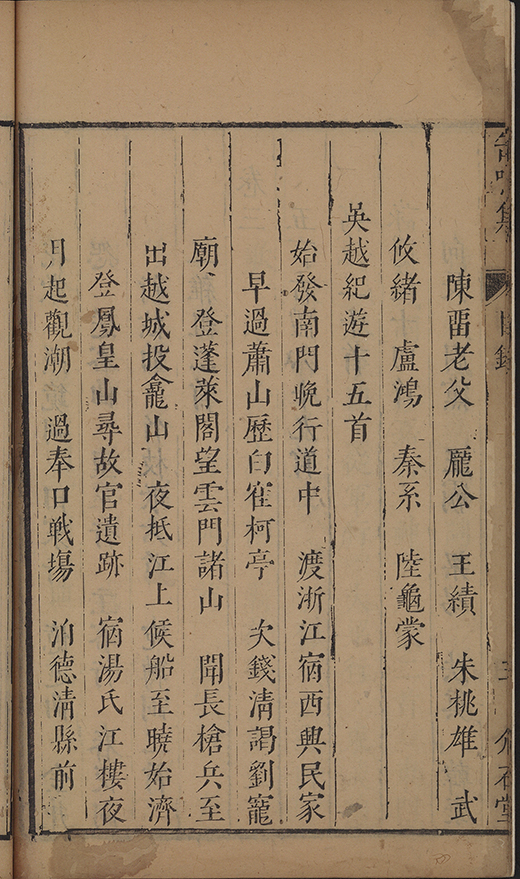 陳畱老父　龎公　王績　朱桃雄　武
攸緒　盧鴻　秦系　陸龜蒙
吳越紀遊十五首
始發南門晚行道中　渡浙江宿西興民家
早過蕭山歷白寉柯亭　次錢清謁劉寵
廟　登蓬萊閣望雲門諸山　聞長槍兵至
出越城投龕山　夜抵江上候船至曉始濟
登鳳皇山尋故宫遺跡　宿湯氏江樓夜
月起觀潮　過奉口戰塲　泊德清縣前